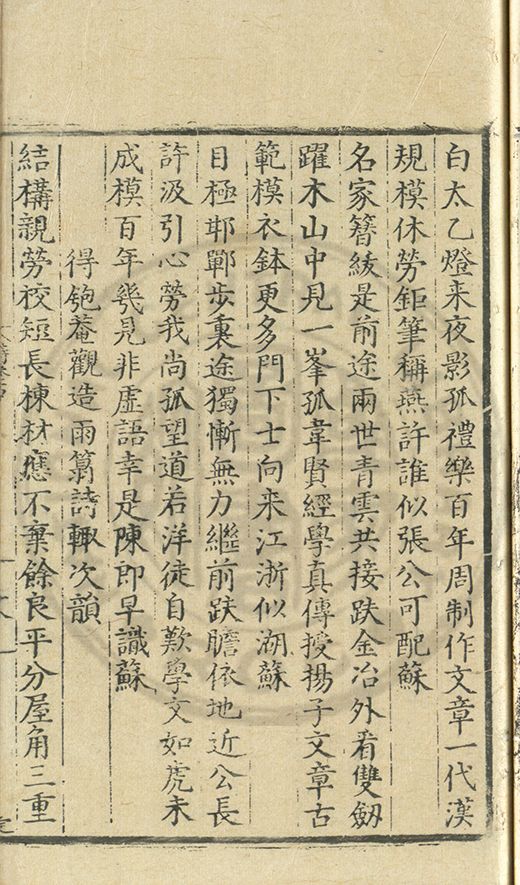 白太乙燈来夜影孤禮樂百年周制作文章一代漢
規模休勞鉅筆稱燕許誰似張公可配蘇
名家簪紱是前途兩世青雲共接跌金冶外看雙劔
躍木山中見一峯孤韋賢經學真傳授揚子文章古
範模衣鉢更多門下士向来江浙似湖蘇
目極邯鄲步裏途獨慚無力繼前跌瞻依地近公長
許汲引心勞我尚孤望道若洋徒自歎學文如虎未
成模百年幾見非虛語幸是陳即早識蘇
得匏菴觀造雨篛詩輙次韻
結構親勞校短長棟材應不棄餘良平分屋角三重